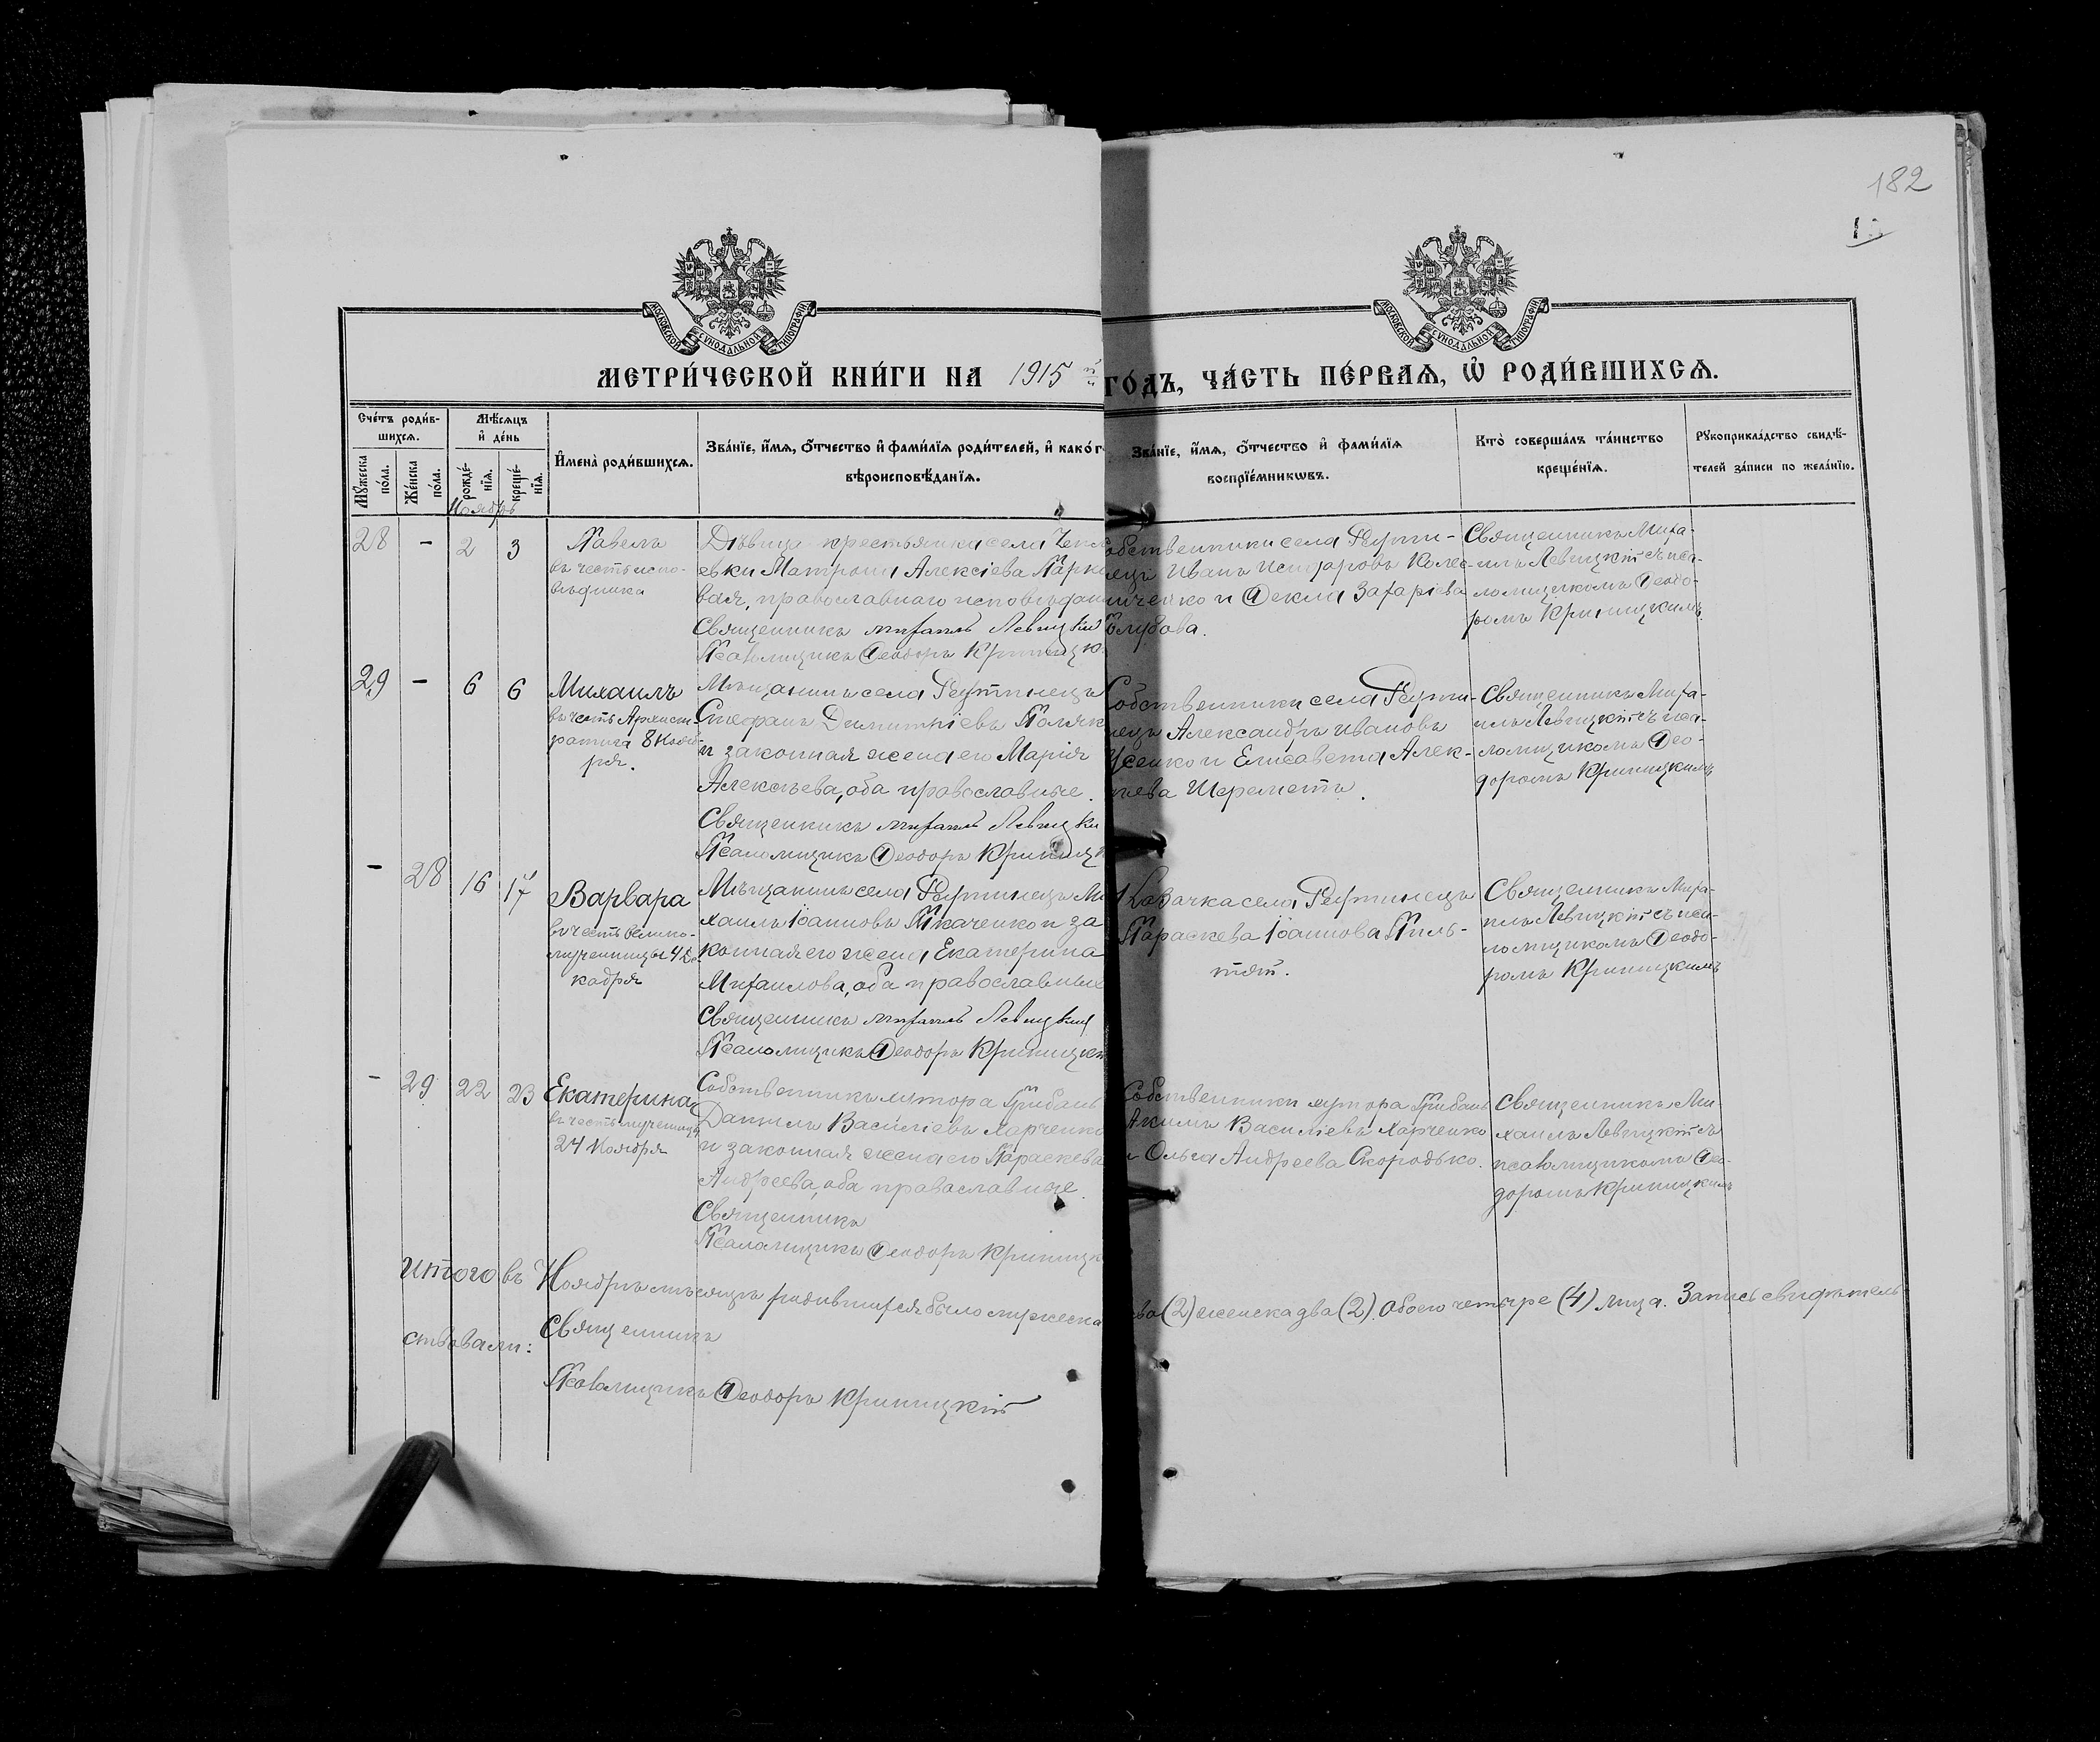 182
МОСКОВСКОЙ СѴНОДАЛЬНОЙ ТИПОГРАФІИ
МОСКОВСКОЙ СѴНОДАЛЬНОЙ ТИПОГРАФІИ
МЕТРИ́ЧЕСКОЙ КНИ́ГИ НА 1915 й
ГО́ДЪ, ЧА́СТЬ ПЕ́РВАЯ, Ѽ РОДИ́ВШИХСЯ.
Сче́тъ роди́в-
шихся.
Му́жеска по́ла.
Же́нска по́ла.
Мѣ́сяцъ
и҆ де́нь
рожде́-
нїя.
креще́-
нїя.
И҆мена̀ роди́вшихся.
Зва́нїе, и҆́мя, ѻ҆́тчество и҆ фами́лїя роди́телей, и҆ како́г
вѣроисповѣ́данїя.
Зва́нїе, и҆́мя, ѻ҆́тчество и҆ фами́лїя
воспрїе́мникѡвъ.
Кто̀ соверша́лъ та́инство
креще́нїя.
Рукоприкла́дство свидѣ́-
телей за́писи по жела́нїю.
Ноябрь
28 - 2 3
Павелъ
въ честь испо-
вѣдника
Дѣвица крестьянка села
евки Матрона Алексіева
вая, православнаго исповѣдан
Священникъ Михаилъ Левицкій
Псаломщикъ Ѳеодоръ Криницк
обственники села Реути-
нецъ Иванъ Исидоровъ Колес-
ниченко и Ѳекла Захаріева
Голубова.
Священникъ Миха-
илъ Левицкій съ пса-
ломщикомъ Ѳеодо-
ромъ Криницкимъ
29 - 6 6
Михаилъ
въ честь Архист-
ратига 8 Нояб-
ря.
Мѣщанинъ села Реутинецъ
Стефанъ Димитріевъ Поляк
и законная жена его Марія
Алексѣева, оба православные.
Священникъ Михаилъ Левицкій
Псаломщикъ Ѳеодоръ Криницк
Собственники села Реути-
нецъ Александръ Ивановъ
Усенко и Елисавета Алек-
ѣева Шереметъ.
Священникъ Миха-
илъ Левицкій съ пса-
ломщикомъ Ѳео-
доромъ Криницкимъ
- 28 16 17
Варвара
въ честь велико-
мученицы 4 Де-
кабря
Мѣщанинъ села Реутинецъ Ми
хаилъ Іоанновъ Ткаченко и за
конная его жена Екатерина
Михаилова, оба православные
Священникъ Михаилъ Левицкій
Псаломщикъ Ѳеодоръ Криницкі
Козачка села Реутинецъ
Параскева Іоаннова Пиль-
тяй.
Священникъ Миха-
илъ Левицкій съ пса-
ломщикомъ Ѳеодо-
ромъ Криницкимъ
- 29 22 23
Екатерина
въ честь мученицы
24 Ноября
Собственникъ хутора Грибанъ
Даніилъ Василіевъ Харченко
и законная жена его Параскева
Андреева, оба православные.
Священникъ
Псаломщикъ Ѳеодоръ Криницк
Собственники хутора Грибанъ
Акимъ Василіевъ Харченко
и Ольга Андреева Скородько.
Священникъ Ми-
хаилъ Левицкій съ
псаломщикомъ Ѳео-
доромъ Криницкимъ
Итого въ Ноябрѣ мѣсяцѣ родившихся было мужеска
ва (2) женска два (2). Обоего четыре (4) лица. Запись свидѣтель
ствовали: Священникъ
Псаломщикъ Ѳеодоръ Криницкій